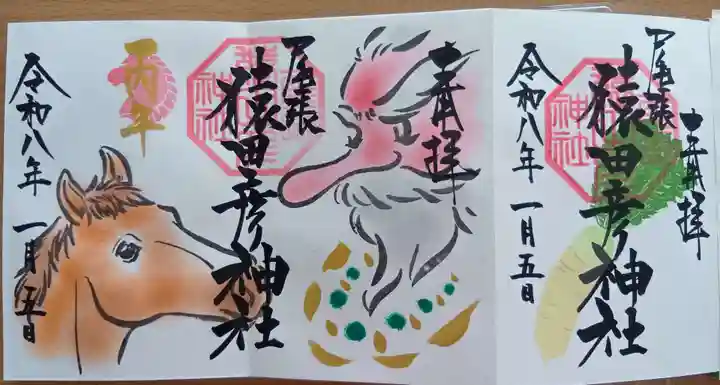 奉拝
尾張
猿田彦神社
令和八年 一月五日
奉拝
尾張
猿田彦神社
丙午
令和八年 一月五日